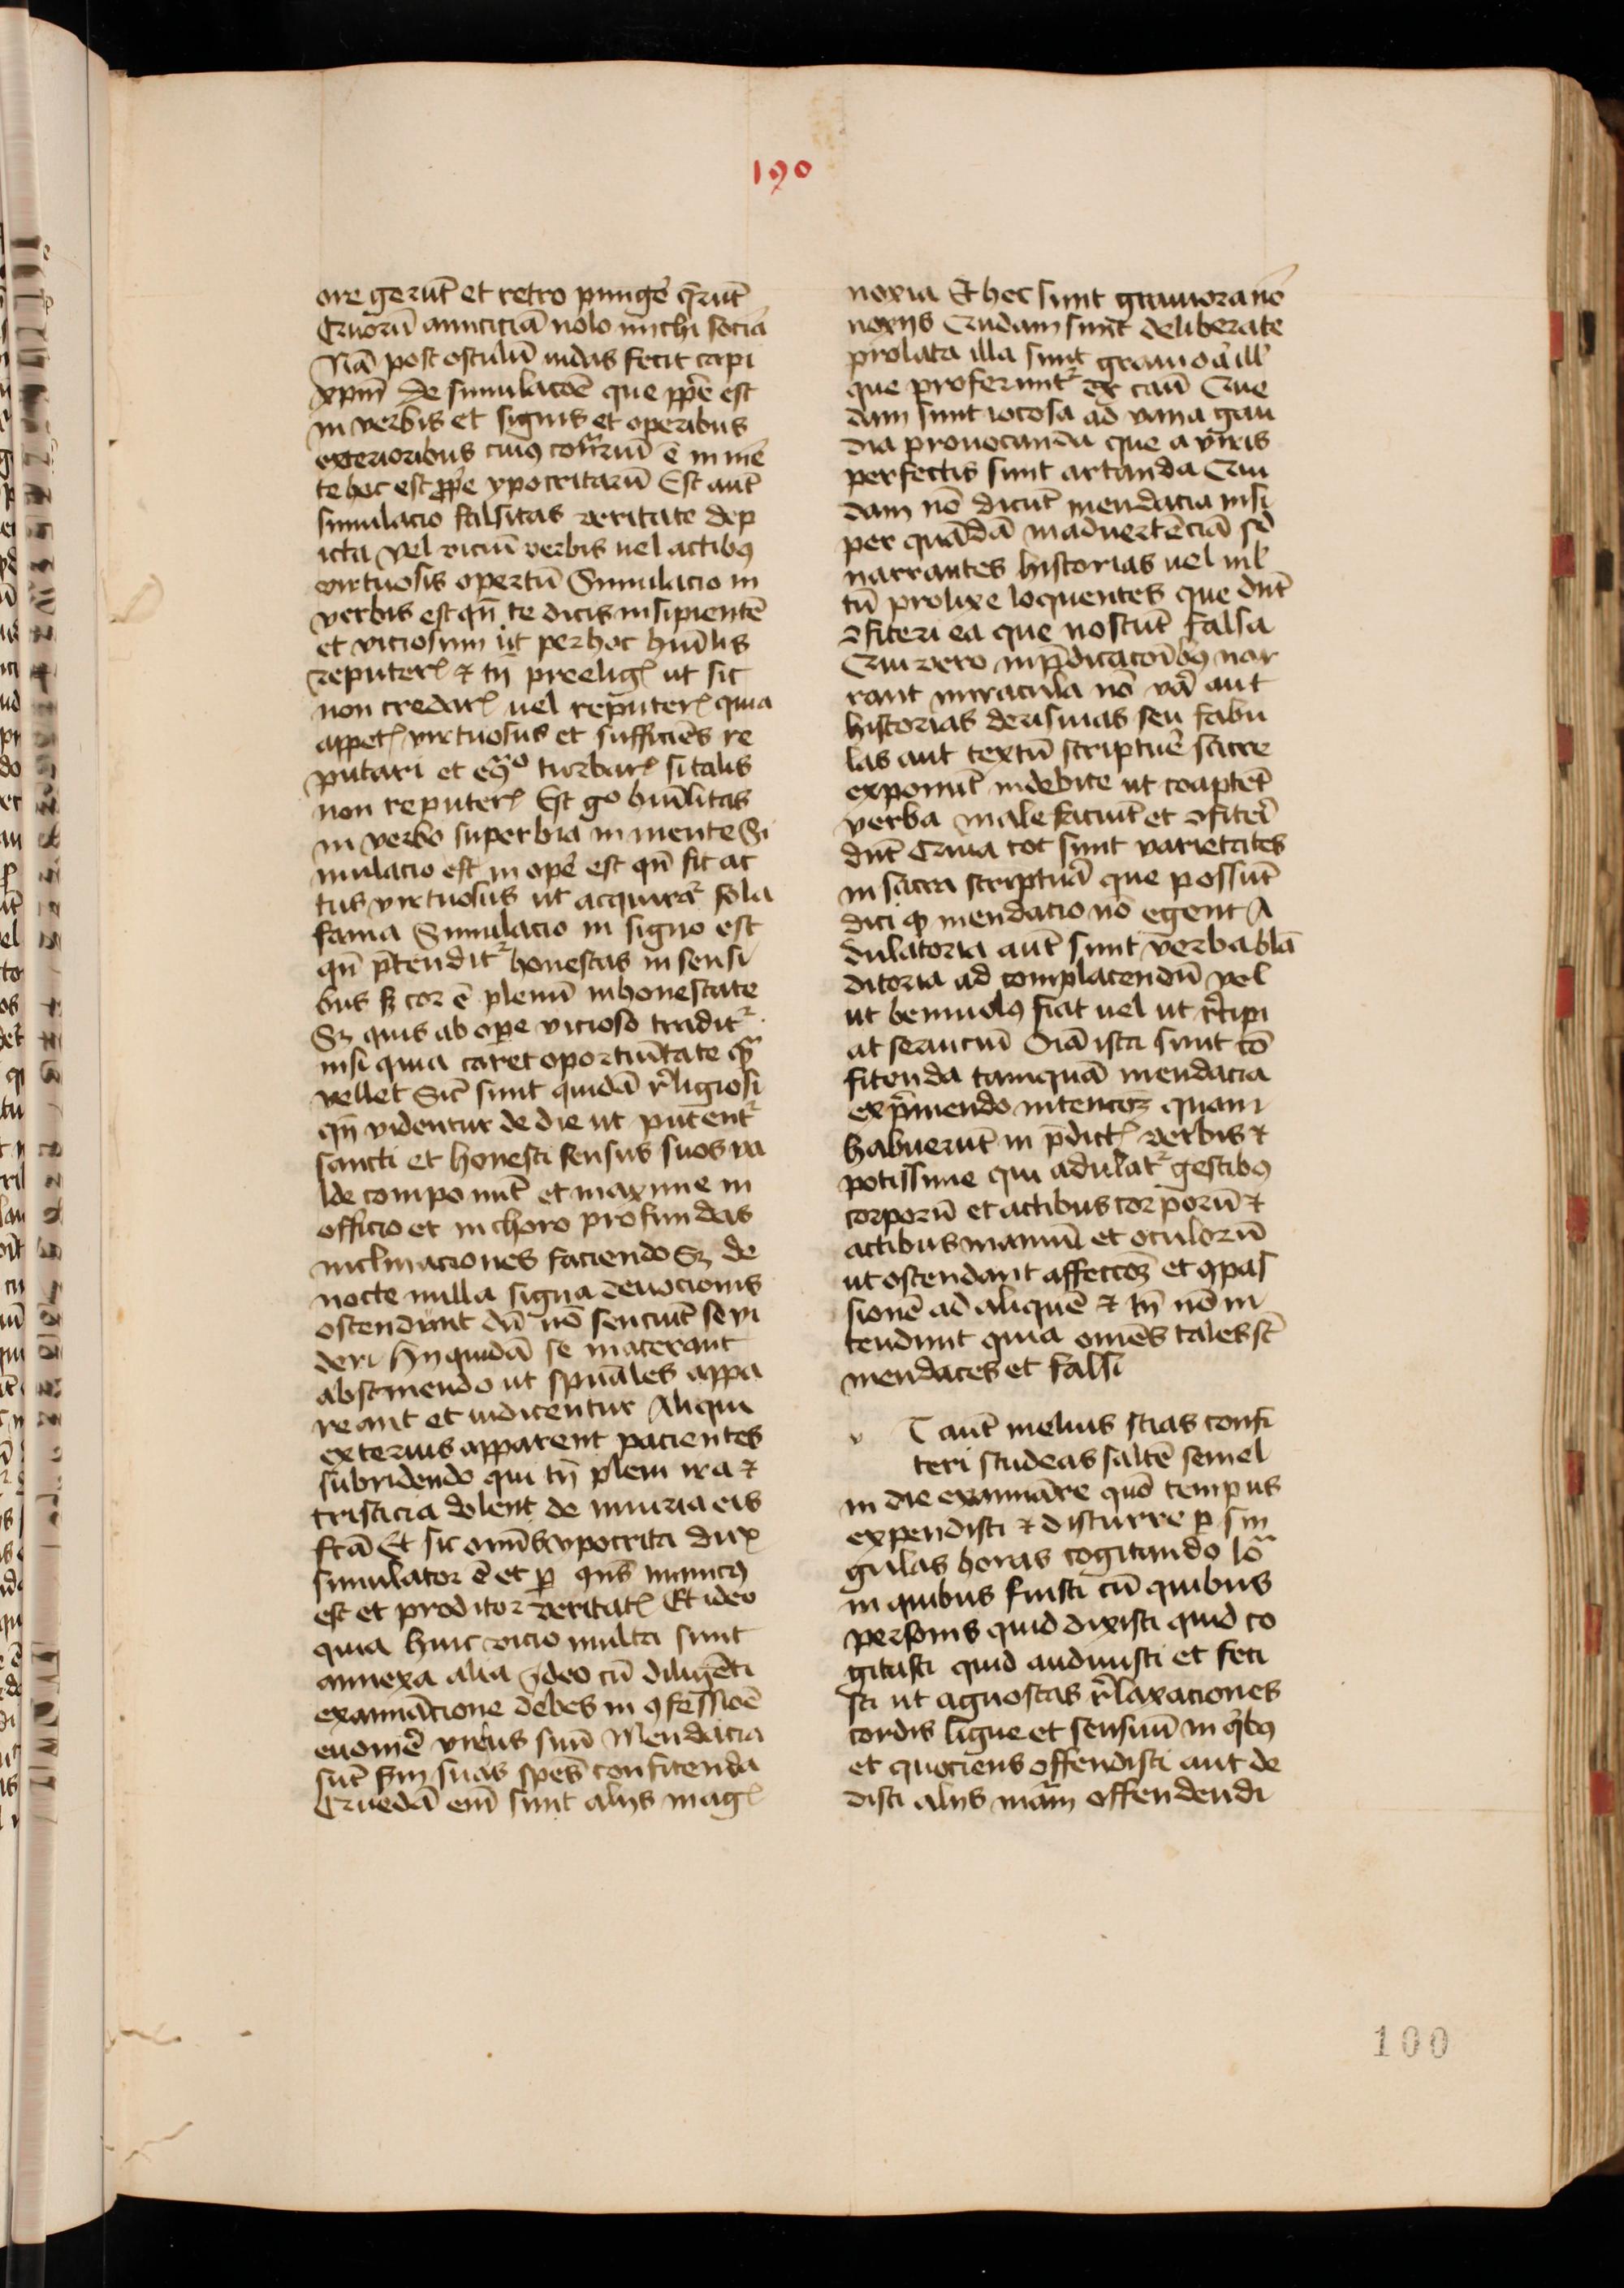 190
ore gerūt et retro pungē q̄rūt
Quorū amiciciā nolo michi sociā
Nā post osculū iudas fecit capi
xpm̄ De simulacōe que ꝓpe est
in verbis et signis et operibus
exterioribus cuiꝰ cōtrariū ē in mē
te hoc est ꝓpe ypocritarū Est aut̄
simulacio falsitas veritate dep
icta vel viciū verbis uel actibꝰ
virtuosis opertū Simulacio in
verbis est qn̄ te dicis insipientē
et viciosum ut per hoc humīlis
reputeris ⁊ tn̄ preeligis ut sic
non credaris uel reputeris quia
appetis virtuosus et sufficiēs re
putari et turbaris si talis
non reputeris Est gͦ humīlitas
in verbo superbia in mente Si
mulacio est in ope est qn̄ fit ac
tus virtuosus ut acquirat̄ sola
fama Simulacio in signo est
qn̄ p̄tendit̄ honestas in sensi
bus sꝫ cor ē plenū inhonestate
Sꝫ quis ab ope vicioso tradit̄
nisi quia caret oportūitate qͣ
vellet Sic̄ sunt quidā religiosi
qn̄ videntur de die ut putent̄
sancti et honesti sensus suos va
lde componūt et maxime in
officio et in choro profundas
inclinaciones faciendo Sꝫ de
nocte nulla signa deuocionis
ostendunt dū nō senciūt se vi
deri Hij quidā se macerant
abstinendo ut spūales appa
reant et iudicentur Aliqui
exterius apparent pacientes
subridendo qui tn̄ pleni ira ⁊
tristicia dolent de iniuria eis
fc̄a Et sic omīs ypocrita dux
simulator ē et ꝑ qn̄s inimicꝰ
est et proditor veritatis Et ideo
quia huic vicio multa sunt
annexa alia Ideo cū diligēti
examinacione debes in ꝯfessioē
euomē virus suū Mendacia
sūt scḋm suas spēs confitenda
Quedā em̄ sunt alijs magis
noxia Et hec sunt grauiora nō
noxijs Quedam sunt deliberate
prolata illa sunt grauioā ill
que proferunt̄ ex cāu Que
dam sunt iocosa ad vana gau
dia prouocanda que a viris
perfectis sunt artanda Qui
dam nō dicūt mendacia nisi
per quādā inaduertēciā sꝫ
narrantes historias uel
tū prolixe loquentes que dn̄t
ꝯfiteri ea que noscūt falsa
Qui vero in p̄dicacōibꝰ nar
rant miracula nō vā aut
historias derisiuas seu fabu
las aut textū scriptuē sacre
exponūt indebite ut coaptēt
verba male faciūt et ꝯfiteri
dn̄t Quia tot sunt varietates
in sacra scriptuā que possūt
dici ꝙ mendacio nō egent A
dulatoria aut̄ sunt verba blā
ditoria ad complacendū vel
ut beniuolꝰ fiat uel ut recipi
at seruiciū Oīa ista sunt cō
fitenda tamquā mendacia
exp̄mendo intencōꝫ quam
habuerūt in p̄dictis verbis ⁊
potissime qui adulat̄ gestibꝰ
corporū et actibus corporū ⁊
actibus manuū et oculorū
ut ostendant affectōꝫ et ꝯpas
sionē ad aliquē ⁊ tn̄ nō in
tendunt quia omēs tales sūt
mendaces et falsi
v T aut̄ melius scias confi
teri studeas saltē semel
in die examīare quō tempus
expendisti ⁊ discurre ꝑ sin
gulas horas cogitando locā
in quibus fuisti cū quibus
personis quid dixisti quid co
gitasti quid audiuisti et feci
sti ut agnoscas relaxaciones
cordis ligue et sensuū in qͥbꝰ
et quociens offendisti aut de
disti alijs mām offendendi
100